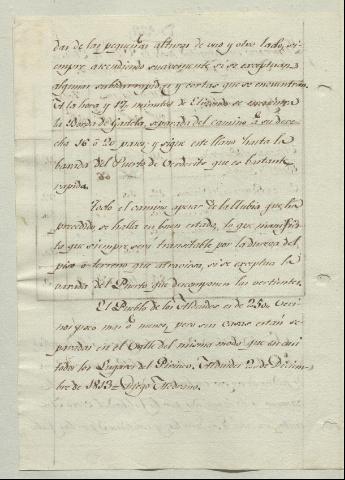 das de las pequeñas alturas de uno y otro lado, si-
empre ascendiendo suavemente si se exceptuan
algunas subidas rapidas y cortas que se encuentran.
A la hora y 17 minutos de Elizondo se encuentra
la Borda de separada del camino á su dere-
cha 16 ó 20 pasos; y sigue este llano hasta la
barriada del Puerto de que es bastante
rapida.
Todo el camino apesar de la llubia que ha
precedido se halla en buen estado, lo que manifies-
ta que siempre sera transitable por la dureza del
piso ó terreno que atraviesa, si se exceptua la
del Puerto que descomponen las vertientes.
El Pueblo de los Alduides es de 250 veci-
nos poco mas ó menos, pero sus casas estan se-
paradas en el Valle del mismo modo que
tados los Lugares del Pirineo. Alduides 2 de Diciem-
bre de 1813 = Diego